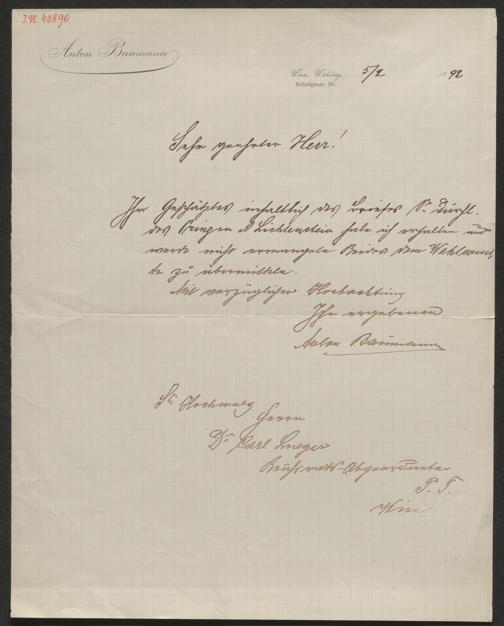 I.N. 40890
Anton Baumann
Wien, Währing, 5/2 1892
Schulgasse 28.
Sehr geehrter Herr!
Ihr Geschätztes inhaltlich des Briefes Sr. Durchl.
des Prinzen A Lichtenstein habe ich erhalten und
werde nicht ermangeln Beides dem Wahlcomi-
te zu übermitteln.
Mit vorzüglicher Hochachtung
Ihr ergebener
Anton Baumann
Sr. Hochwolg
Herrn
Dr. Carl Lueger
Reichsraths-Abgeordneter
P. T.
Wien